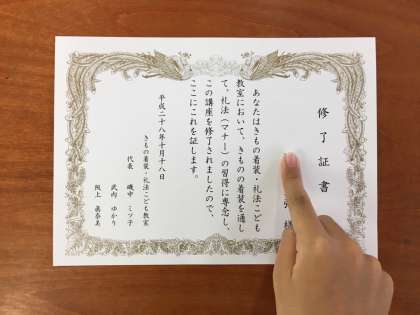 修了証書
様
あなたはきもの着装・礼法こども
教室において、きものの着装を通し
て、礼法（マナー）の習得に専念し、
この講座を修了されましたので、
ここにこれを証します。
平成二十八年十月十八日
きもの着装・礼法こども教室
代表 磯中 ミツ子
武内 ゆかり
阪上 眞奈美